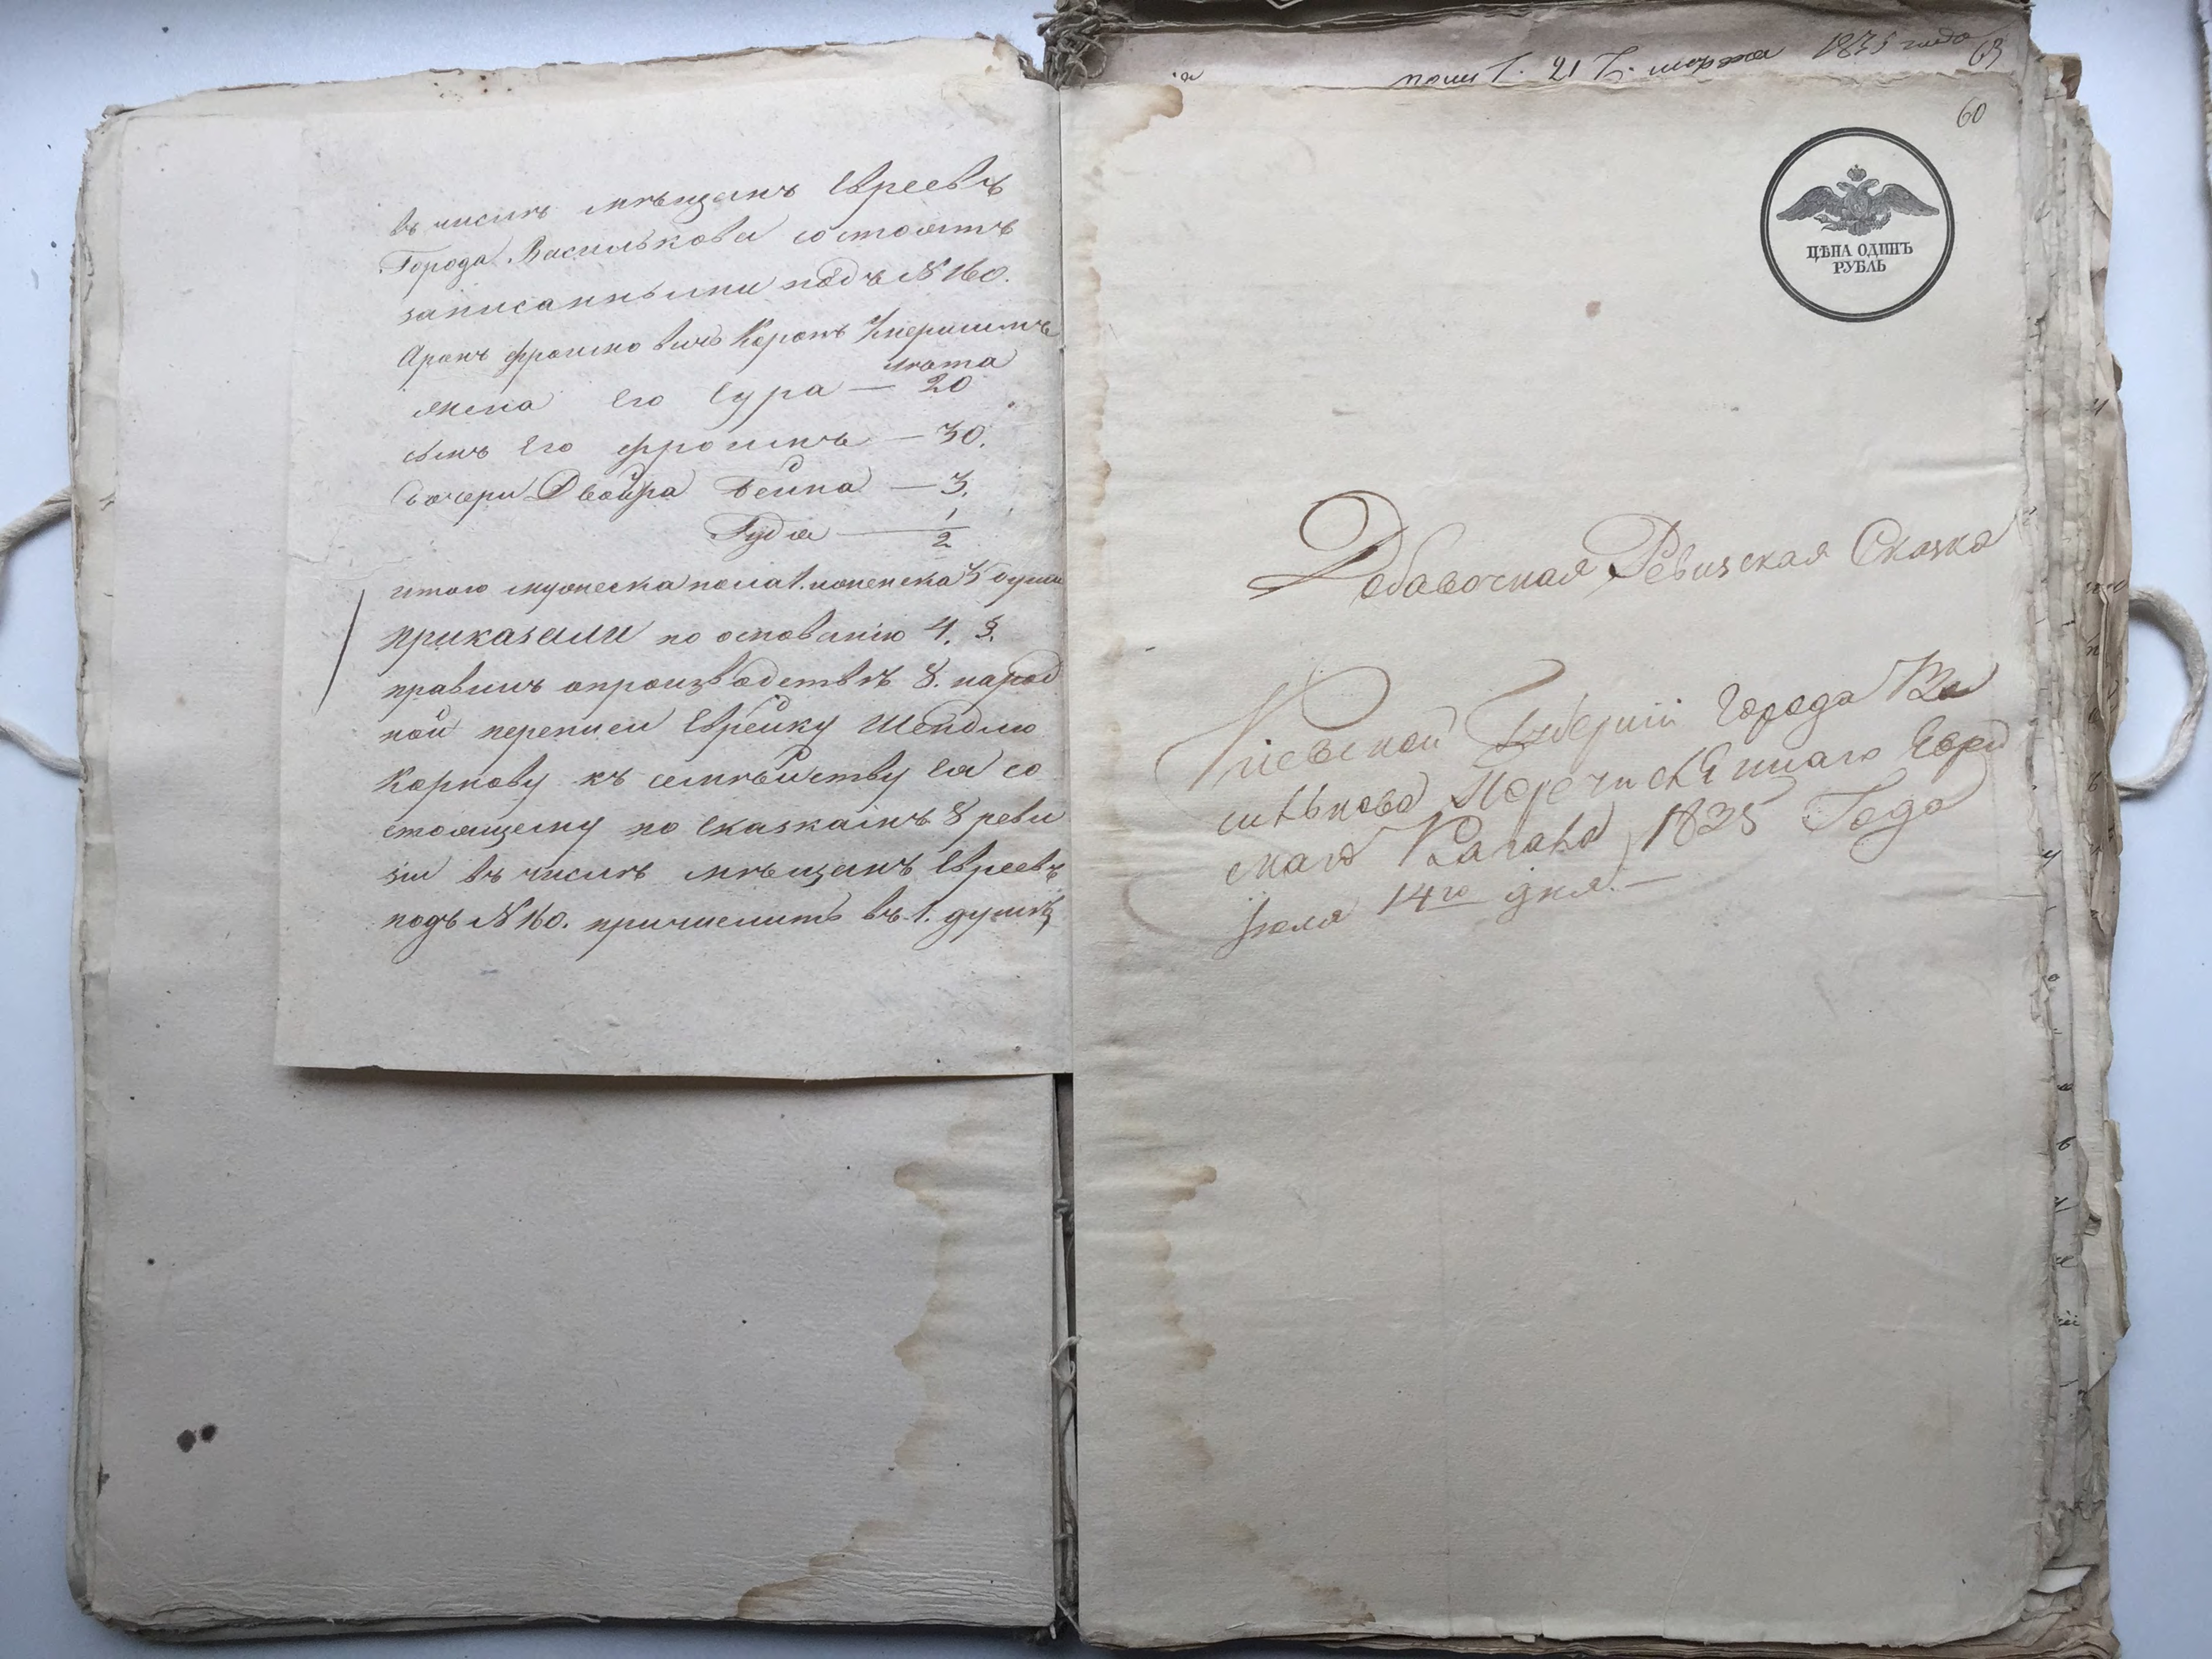 въ числѣ мѣщанъ Евреевъ
Города Василькова состоятъ
записанными подъ № 160.
Аронъ Фроимовичъ
лѣта
жена Его Сура — 20
сынъ Его Фроимъ — 30.
Дочери Двойра Бейна — 3.
Гудя — 1/2
итого мужеска пола 1. женска 3 души
приказали по основанію 4. §.
правилъ о производствѣ 8. народ
ной переписи Еврейку Шейндлю
Корнову къ семѣйству Ея со
стоящему по Сказкамъ 8 реви
зіи въ числѣ мѣщанъ Евреевъ
подъ № 160. причислить въ 1. душѣ
1835 года 63
60
ЦѢНА ОДИНЪ
РУБЛЬ
Добавочная Ревизская Сказка
Кіевской Губерніи Города Ва
силькова Перечисленнаго Еврей
скаго Кагала 1835 Года
Іюля 14го дня. —